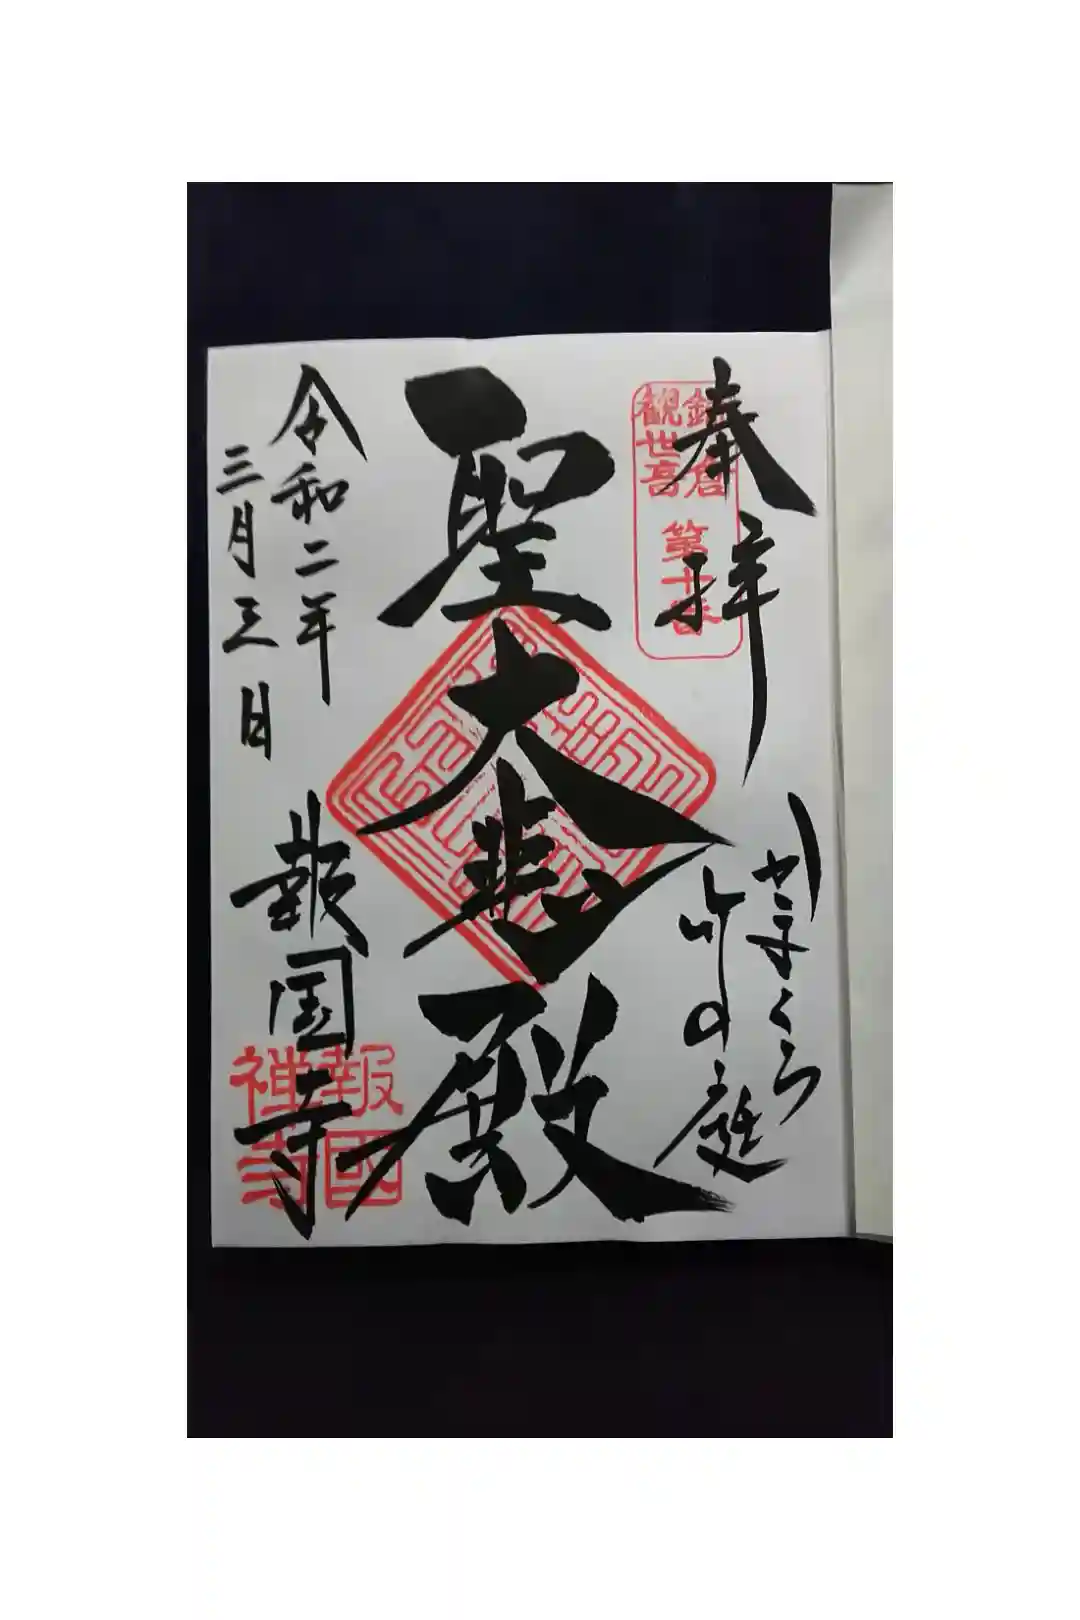 奉拝
鎌倉
観世音
第十番
かまくら
竹の庭
聖大悲殿
令和二年
三月三日
報国寺
報國
禅寺